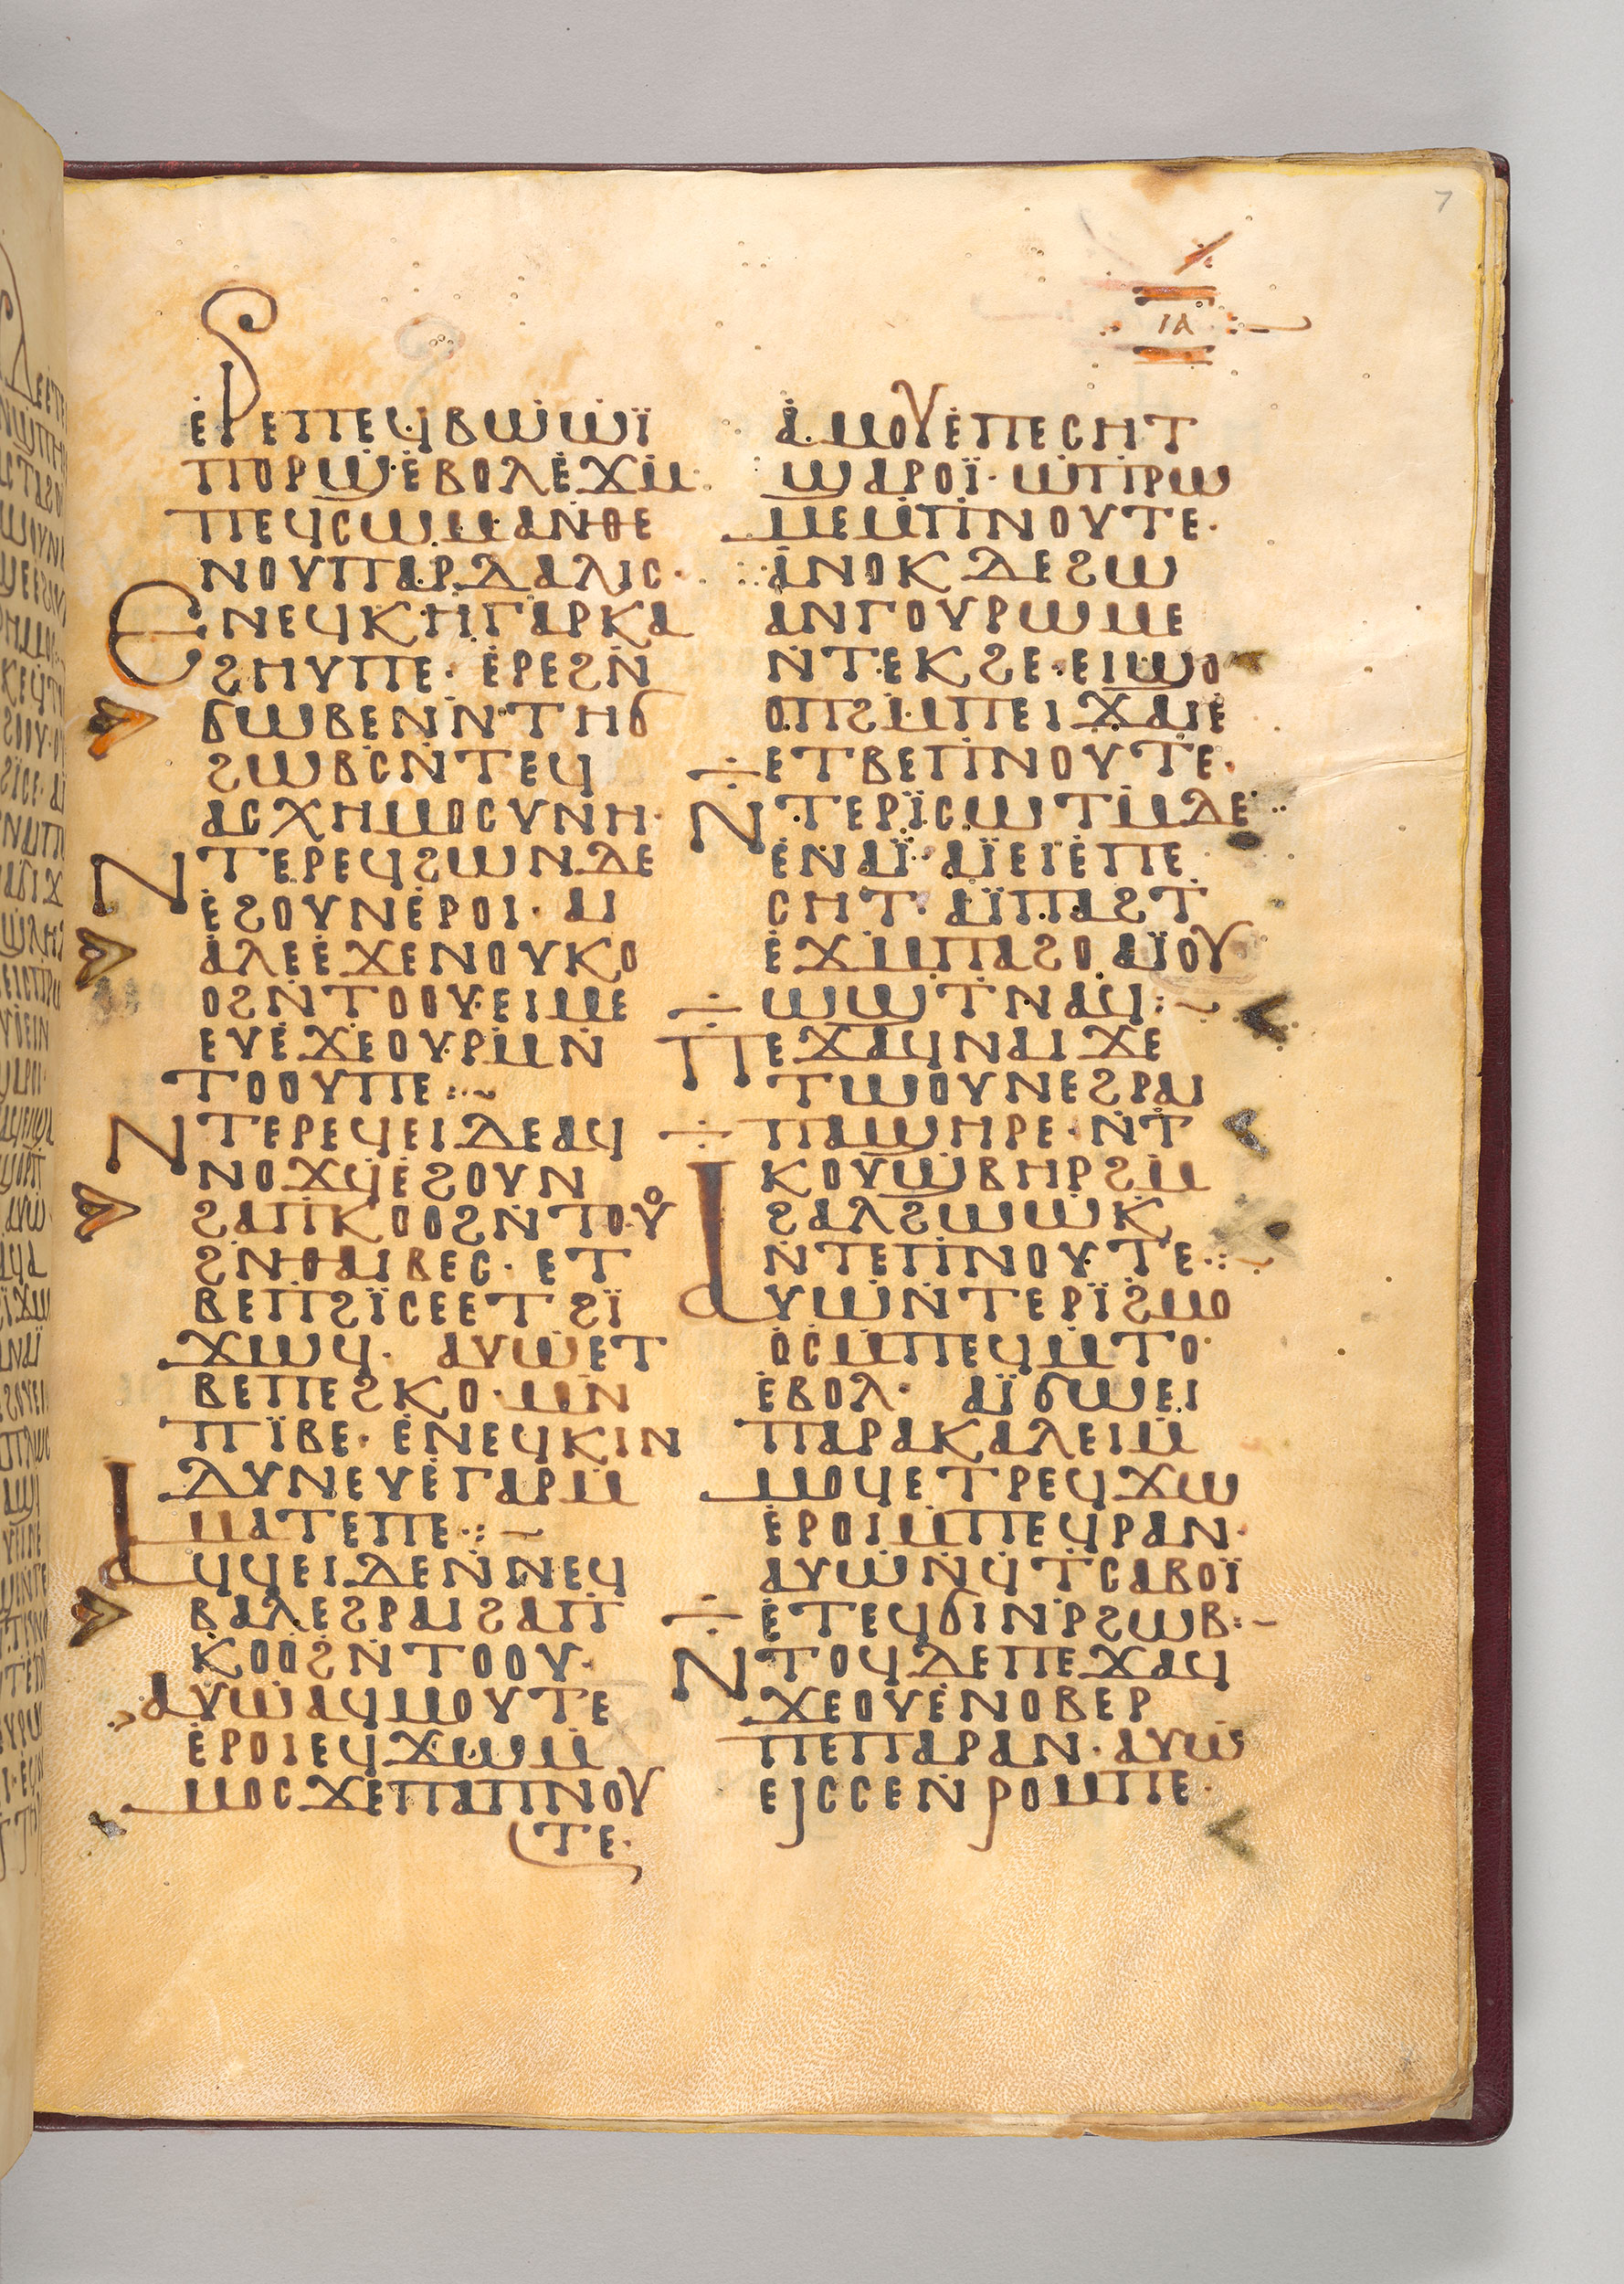 7
ⲓⲁ
ⲉⲣⲉⲡⲉϥⲃⲱⲱⲓ̈
ⲡⲟⲣϣⲉⲃⲟⲗⲉϫⲙ̄
ⲡⲉϥⲥⲱⲙⲁⲛⲑⲉ
ⲛⲟⲩⲡⲁⲣⲇⲁⲗⲓⲥ·
ⲉⲛⲉϥⲕⲏⲅⲁⲣⲕⲁ
ϩⲏⲩⲡⲉ· ⲉⲣⲉϩⲛ̄
ϭⲱⲃⲉⲛⲛ̄ⲧⲏϭ
ϩⲱⲃⲥⲛ̄ⲧⲉϥ
ⲁⲥⲭⲏⲙⲟⲥⲩⲛⲏ·
ⲛⲧⲉⲣⲉϥϩⲱⲛⲇⲉ
ⲉϩⲟⲩⲛⲉⲣⲟⲓ· ⲁⲓ
ⲁⲗⲉⲉϫⲉⲛⲟⲩⲕⲟ
ⲟϩⲛ̄ⲧⲟⲟⲩ·ⲉⲓⲙⲉ
ⲉⲩⲉϫⲉⲟⲩⲣⲙ̄ⲛ̄
ⲧⲟⲟⲩⲡⲉ:~
ⲛⲧⲉⲣⲉϥⲉⲓⲇⲉⲁϥ
ⲛⲟϫϥ̄ⲉϩⲟⲩⲛ
ϩⲁⲡⲕⲟⲟϩⲛ̄ⲧⲟⲟⲩ
ϩⲛ̄ⲑⲁⲓⲃⲉⲥ· ⲉⲧ
ⲃⲉⲡϩⲓ̈ⲥⲉⲉⲧϩⲓ̈
ϫⲱϥ· ⲁⲩⲱⲉⲧ
ⲃⲉⲡⲉϩⲕⲟ·ⲙⲛ̄
ⲡⲓ̈ⲃⲉ· ⲉⲛⲉϥⲕⲓⲛ
ⲇⲩⲛⲉⲩⲉⲅⲁⲣⲙ̄
ⲙⲁⲧⲉⲡⲉ·:~
ⲁϥϥⲉⲓⲇⲉⲛⲛⲉϥ
ⲃⲁⲗⲉϩⲣⲁⲓϩⲁⲡ
ⲕⲟⲟϩⲛ̄ⲧⲟⲟⲩ·
ⲁⲩⲱⲁϥⲙⲟⲩⲧⲉ
ⲉⲣⲟⲓⲉϥϫⲱⲙ̄
ⲙⲟⲥϫⲉⲡⲁⲡⲛⲟⲩ
ⲧⲉ·
ⲁⲙⲟⲩⲉⲡⲉⲥⲏⲧ
ϣⲁⲣⲟⲓ̈· ⲱⲡⲣⲱ
ⲙⲉⲙ̄ⲡⲛⲟⲩⲧⲉ·
ⲁⲛⲟⲕⲇⲉϩⲱ
ⲁⲛⲅⲟⲩⲣⲱⲙⲉ
ⲛ̄ⲧⲉⲕϩⲉ·ⲉⲓϣⲟ
ⲟⲡϩⲙ̄ⲡⲉⲓϫⲁⲓⲉ
ⲉⲧⲃⲉⲡⲛⲟⲩⲧⲉ·
ⲛⲧⲉⲣⲓ̈ⲥⲱⲧⲙ̄ⲇⲉ
ⲉⲛⲁⲓ̈·ⲁⲓ̈ⲉⲓⲉⲡⲉ
ⲥⲏⲧ· ⲁⲓ̈ⲡⲁϩⲧ
ⲉϫⲙ̄ⲡⲁϩⲟⲁⲓ̈ⲟⲩ
ⲱϣⲧⲛⲁϥ:~
ⲡⲉϫⲁϥⲛⲁⲓϫⲉ
ⲧⲱⲟⲩⲛⲉϩⲣⲁⲓ
ⲡⲁϣⲏⲣⲉ·ⲛ̄ⲧ
ⲕⲟⲩϣⲃⲏⲣϩⲙ̄
ϩⲁⲗϩⲱⲱⲕ
ⲛ̄ⲧⲉⲡⲛⲟⲩⲧⲉ·:~
ⲁⲩⲱⲛ̄ⲧⲉⲣⲓ̈ϩⲙⲟ
ⲟⲥⲙ̄ⲡⲉϥⲙ̄ⲧⲟ·
ⲉⲃⲟⲗ· ⲁⲓ̈ϭⲱⲉⲓ
ⲡⲁⲣⲁⲕⲁⲗⲉⲓⲙ̄
ⲙⲟϥⲉⲧⲣⲉϥϫⲱ
ⲉⲣⲟⲓⲙ̄ⲡⲉϥⲣⲁⲛ·
ⲁⲩⲱⲛϥ̄ⲧⲥⲁⲃⲟⲓ̈
ⲉⲧⲉϥϭⲓⲛⲣ̄ϩⲱⲃ:~
ⲛⲧⲟϥⲇⲉⲡⲉϫⲁϥ
ϫⲉⲟⲩⲉⲛⲟⲃⲉⲣ
ⲡⲉⲡⲁⲣⲁⲛ·ⲁⲩⲱ
ⲉⲓⲥⲥⲉⲛⲣⲟⲙⲡⲉ·